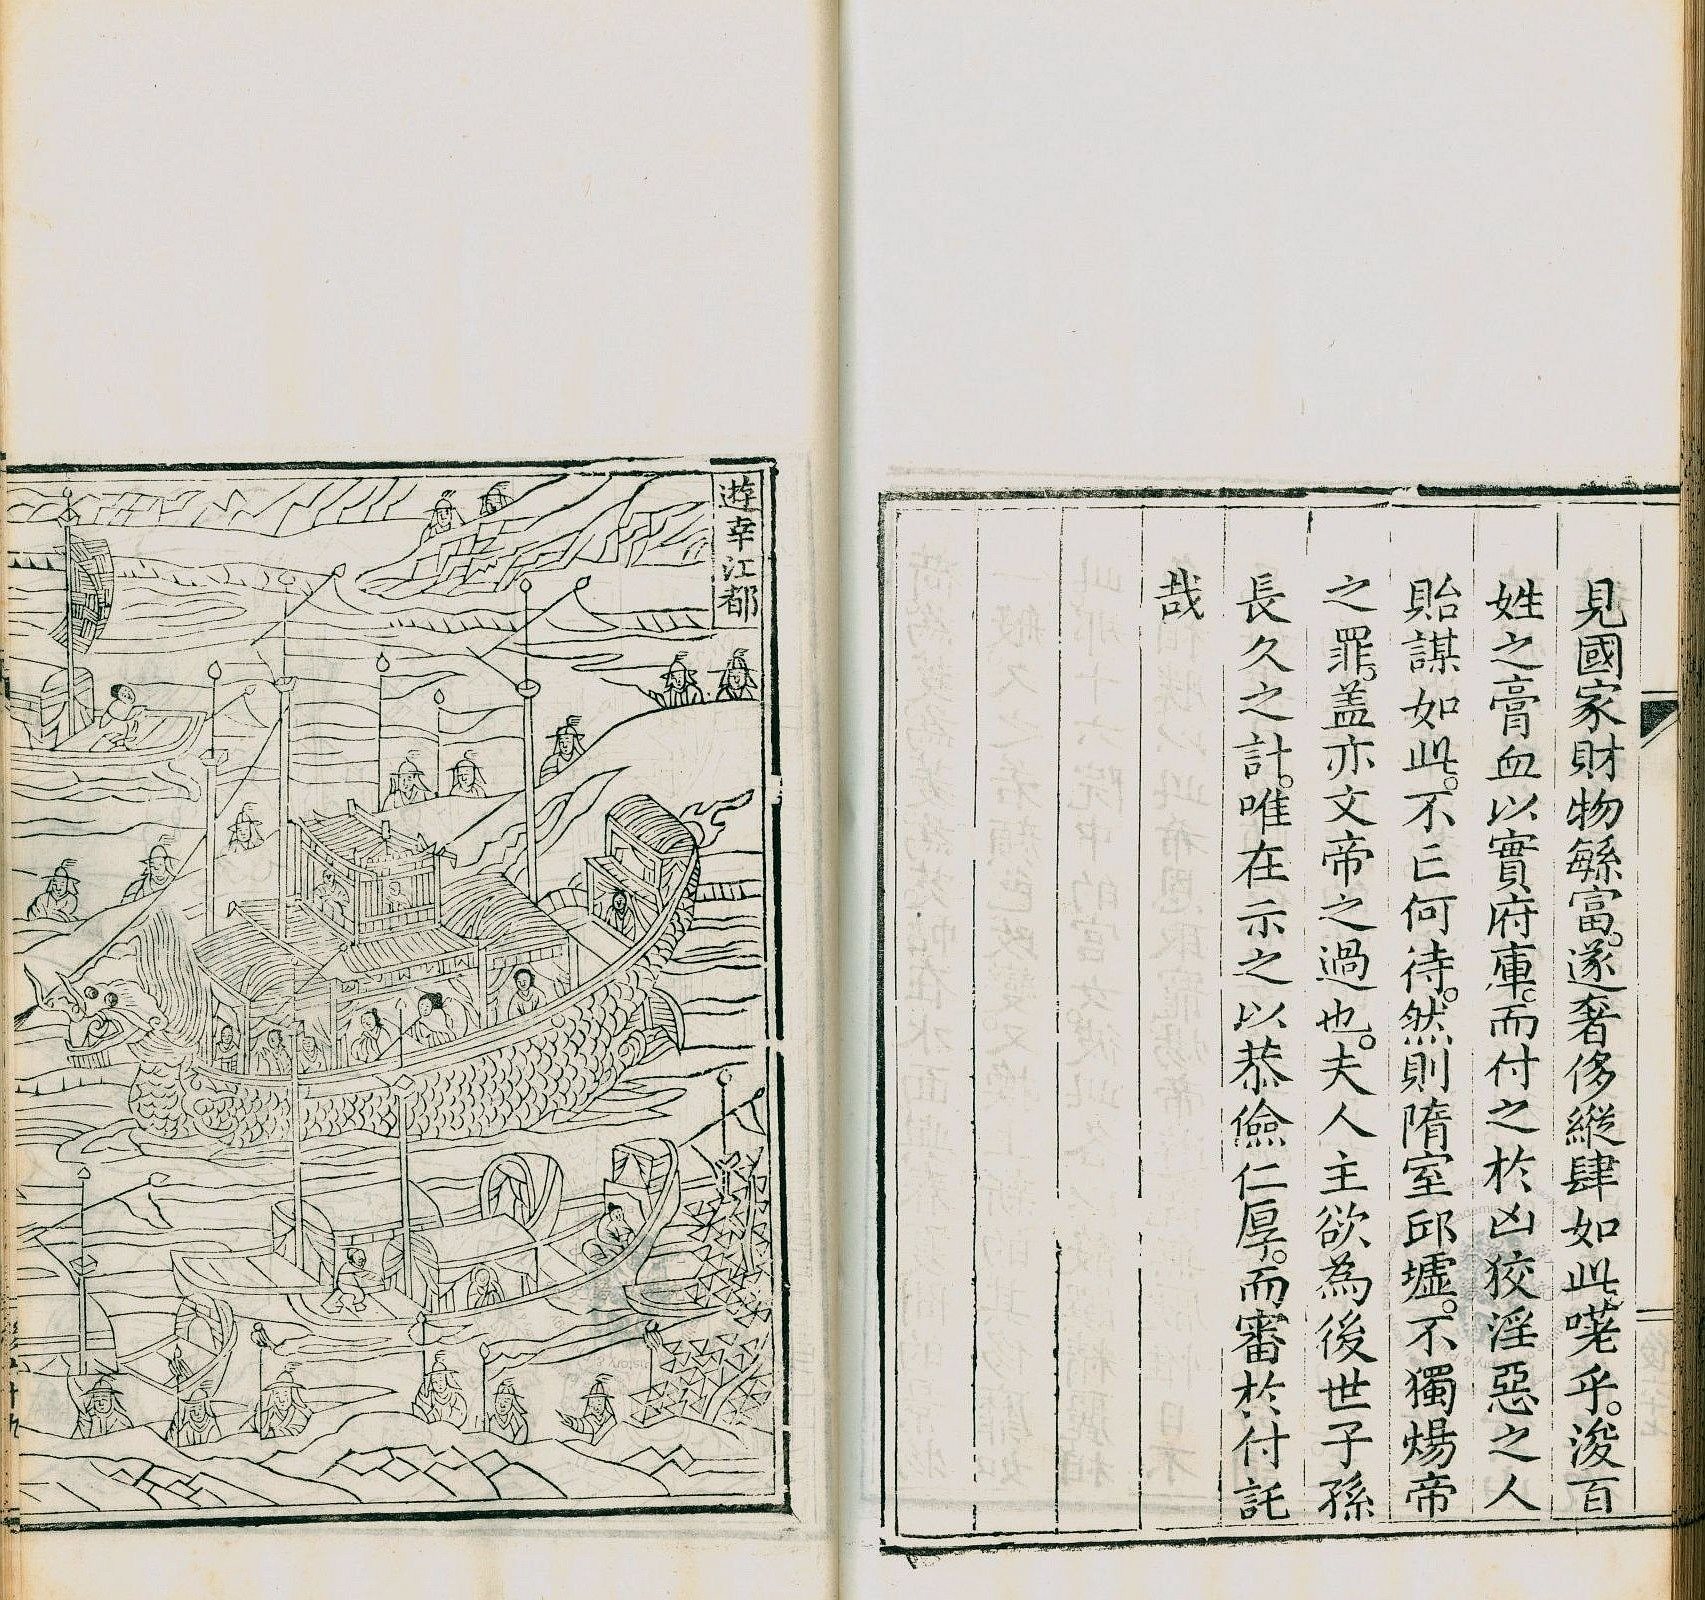 見國家財物繇富。遂奢侈縱肆如此嘵乎。浚百
姓之膏血以實府庫。而付之於凶狡淫惡之人
貽謀如此。不亡何待。然則隋室邱墟。不獨煬帝
之罪。盖亦文帝之過也。夫人主欲為後世子孫
長久之計。唯在示之以恭儉仁厚。而審於付託
哉
遊幸江都